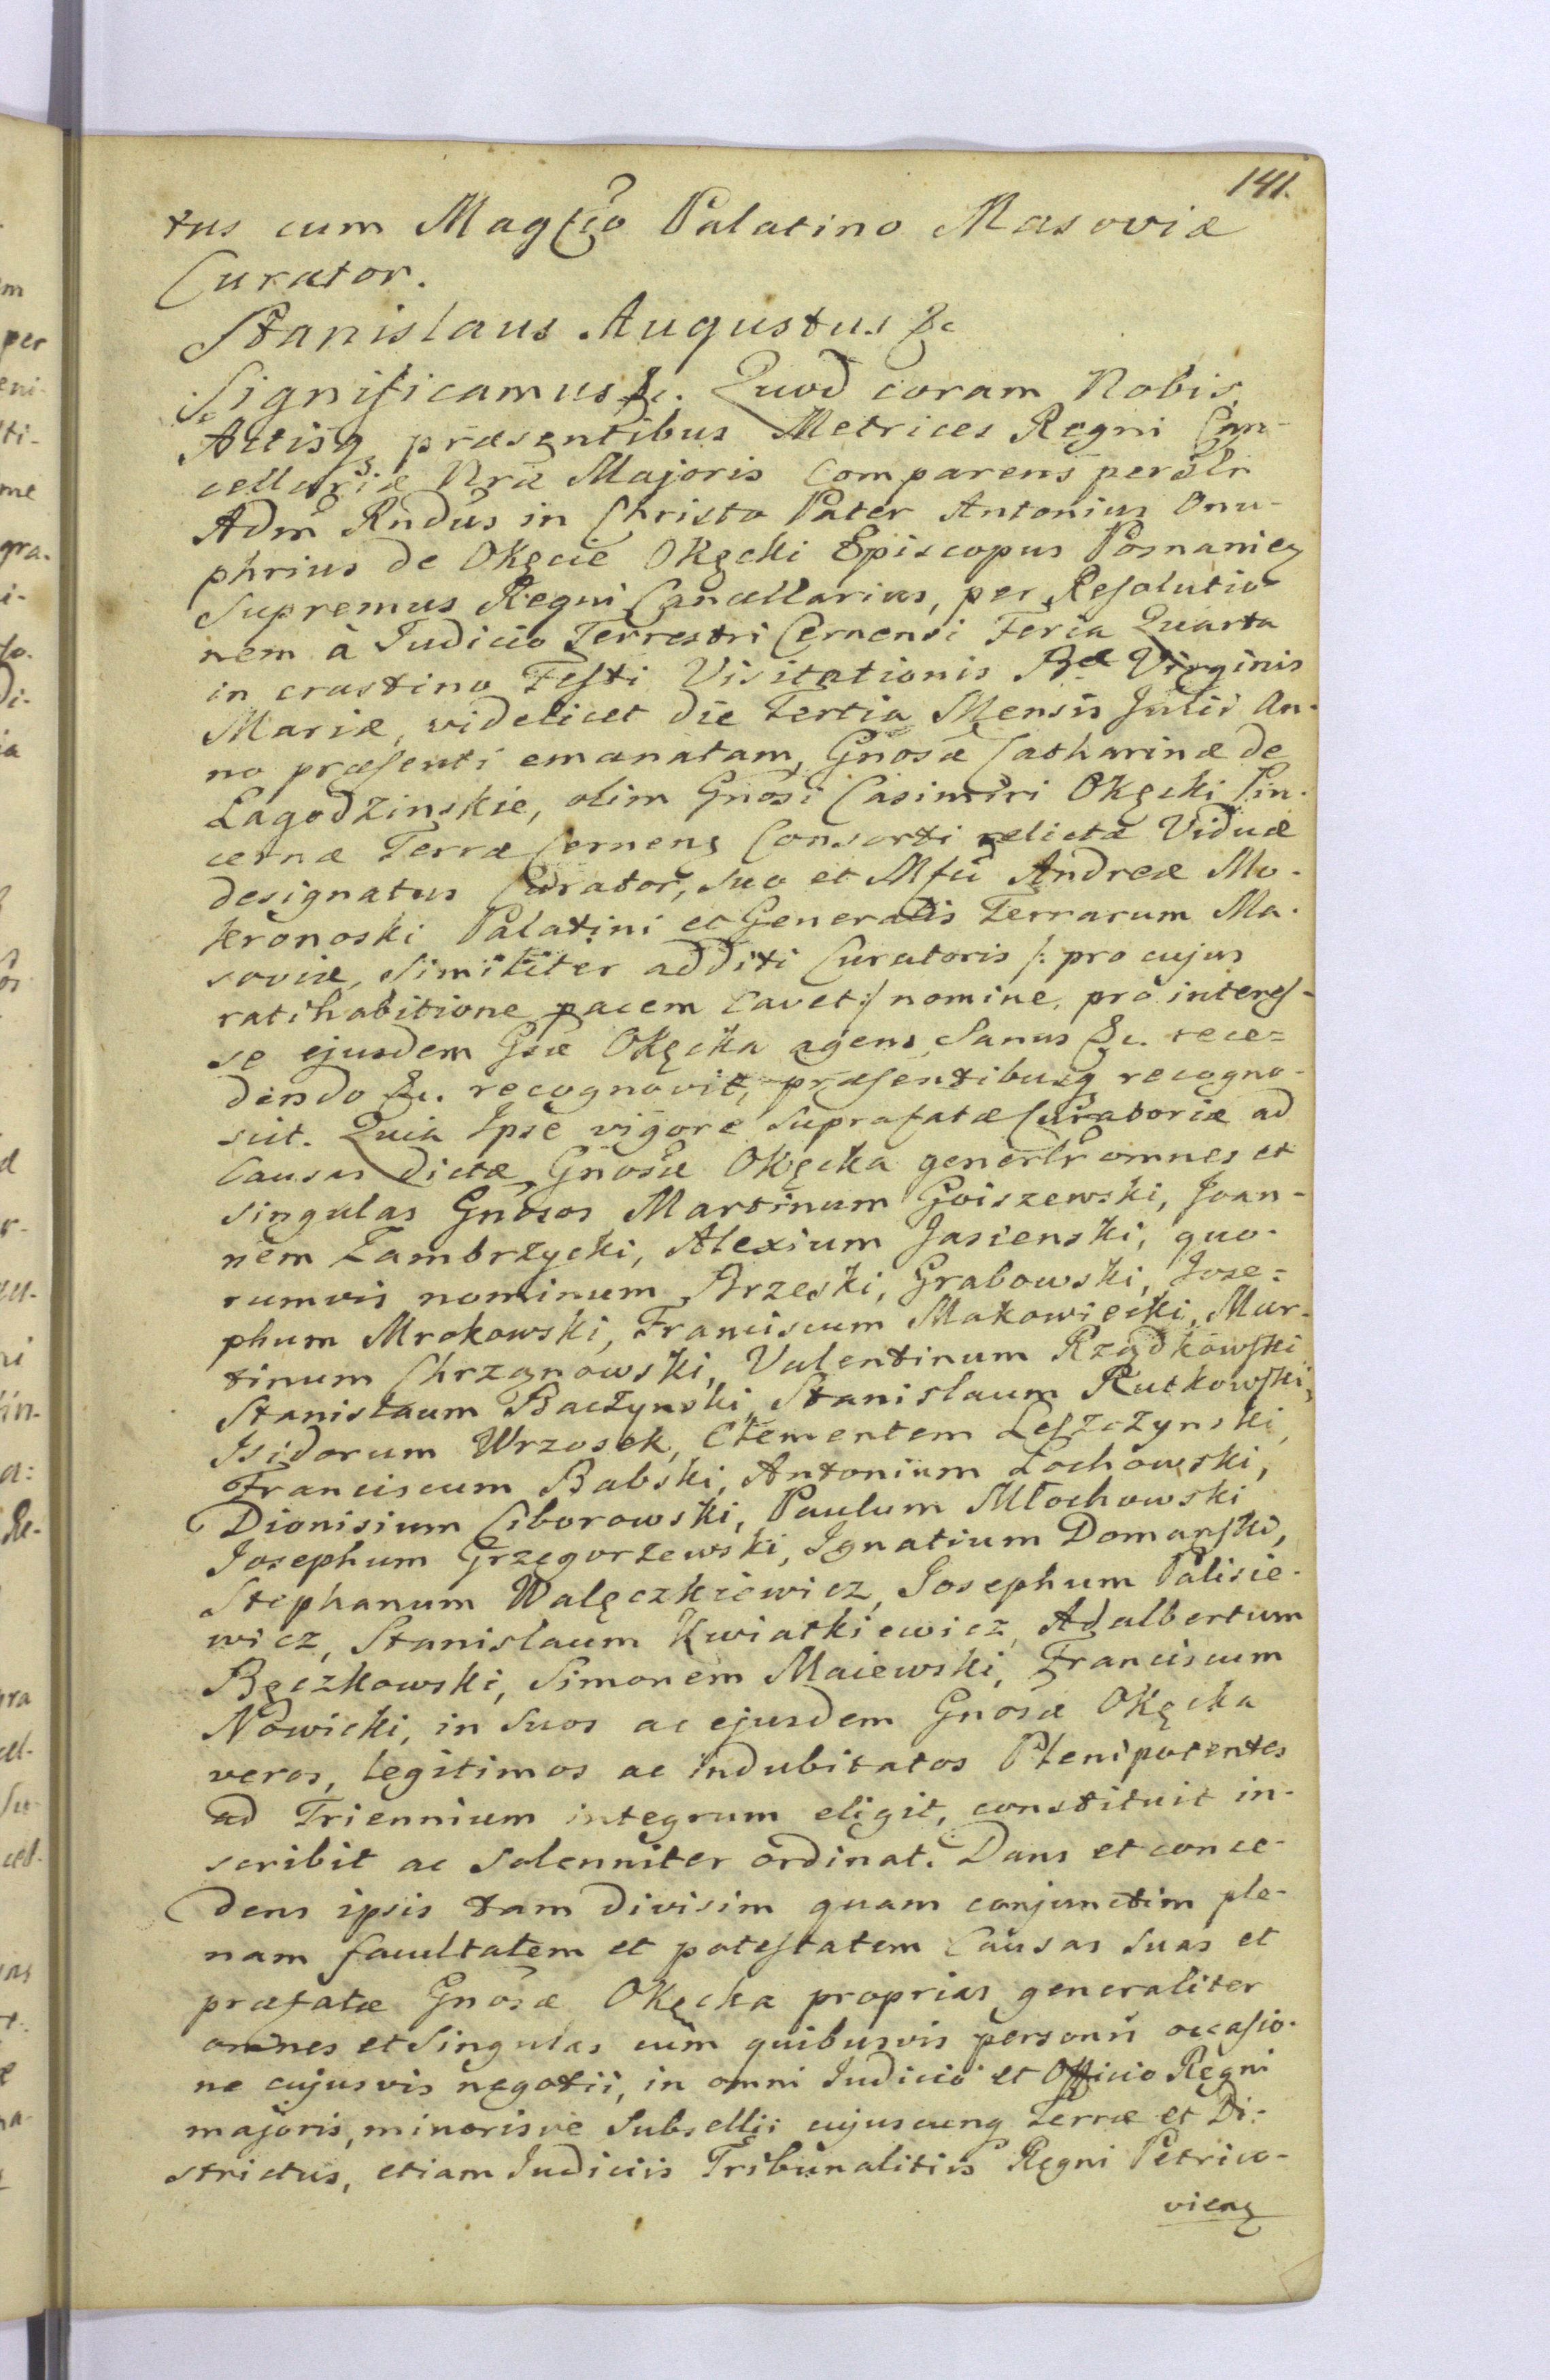 141.
tus cum Magfco Palatino Masoviæ
Curator.
Stanislaus Augustus &c
Significamus &c. Quod coram Nobis,
Actisq præsentibus Metrices Regni Can-
cellariæ Nræ Majoris Comparens perillr
Adm Rndus in Christo Pater Antonius Onu-
phrius de Okęcie Okęcki Episcopus Posnanieꝫ
Supremus Regni Cancellarius, per Resolutio
nem à Judicio Terrestri Cernensi Feria Quarta
in crastino Festi Visitationis Bæ Virginis
Mariæ, videlicet die Tertia Mensis Julii An-
no præsenti emanatam, Gnosæ Catharinæ de
Lagodzinskie, olim Gnosi Casimiri Okęcki Pin-
cernæ Terræ Cernenꝫ Consorti relictæ Viduæ
designatus Curator, suo et Mfci Andreæ Mo-
kronoski Palatini et Generalis Terrarum Ma-
soviæ, Similiter additi Curatoris /: pro cujus
ratihabitione pacem cavet :/ nomine, pro interes-
se ejusdem Gsæ Okęcka agens, Sanus &c. rece=
dendo &c. recognovit, præsentibusq recogno-
scit. Quia Ipse vigore Suprafatæ Curatoriæ ad
Causas dictæ Gnosæ Okęcka generlr omnes et
singulas Gnosos Martinum Goiszewski, Joan-
nem Zambrzycki, Alexium Jasienski, quo-
rumvis nominum Brzeski, Grabowski, Jose=
phum Mrokowski, Franciscum Makowiecki, Mar-
tinum Chrzanowski, Valentinum Rządkowski
Stanislaum Baczynski, Stanislaum Rutkowski,
Isidorum Wrzosek, Clementem Leszczynski,
Franciscum Babski, Antonium Lochowski,
Dionisium Ciborowski, Paulum Młochowski
Josephum Grzegorzewski, Ignatium Domanski,
Stephanum Walęczkiewicz, Josephum Palisie-
wicz, Stanislaum Kwiatkiewicz, Adalbertum
Bęczkowski, Simonem Maiewski, Franciscum
Nowicki, in Suos ac ejusdem Gnosæ Okęcka
veros, legitimos ac indubitatos Plenipotentes
ad Triennium integrum eligit, constituit in-
scribit ac Solenniter ordinat. Dans et conce-
dens ipsis tam divisim quam conjunctim ple-
nam facultatem et potestatem Causas Suas et
præfatæ Gnosæ Okęcka proprias generaliter
omnes et Singulas cum quibusvis personis occasio-
ne cujusvis negotii, in omni Judicio et Officio Regni
majoris, minorisve Subsellii cujuscunq Terræ et Di-
strictus, etiam Judiciis Tribunalitiis Regni Petrico-
vienꝫ